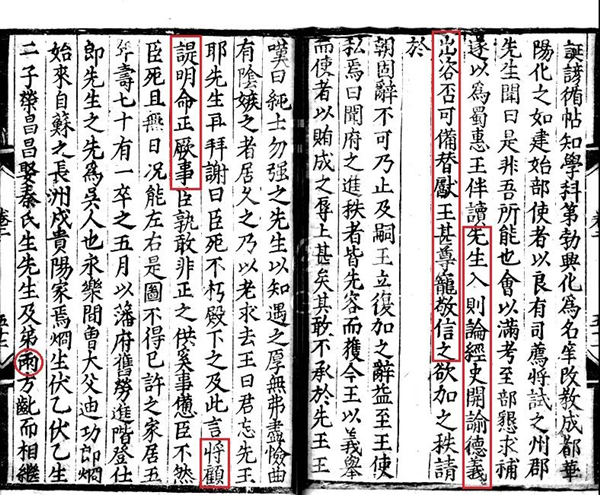 誣諺循帖知學科第勃興化為名牟改教成都華
陽化之如建始部使者以良有司薦將試之州郡
先生聞曰是非吾所能也會以滿考至部懇求補
遂以為蜀惠王伴讀先生入則論經史開諭德義
出咨否可備替獻王甚尊寵敬信之欲加之秩請
於
朝固辭不可乃止及嗣王立復加之辭益至王使
私焉曰聞府之進秩者皆先容而獲今王以義舉
而使者以賄成之辱上甚矣其敢不承於先王王
嘆曰純士勿强之先生以知遇之厚無弗盡愉曲
有陰嫉之者居久之乃以老求去王曰君忘先王
耶先生再拜謝曰臣死不朽殿下之及此言將顧
諟明命正厥事臣孰敢非正之供奚事僡臣不然
臣死且無日况能左右是圖不得已許之家居五
年壽七十有一卒之五月以藩府舊勞進階登仕
郎先生之先為吳人也永樂間曾大父迪功郎燗
始來自蘇之長洲戍貴陽家焉燗生伏乙伏乙生
二子榮昌昌娶秦氏生先生及弟兩方齔而相繼
卷二